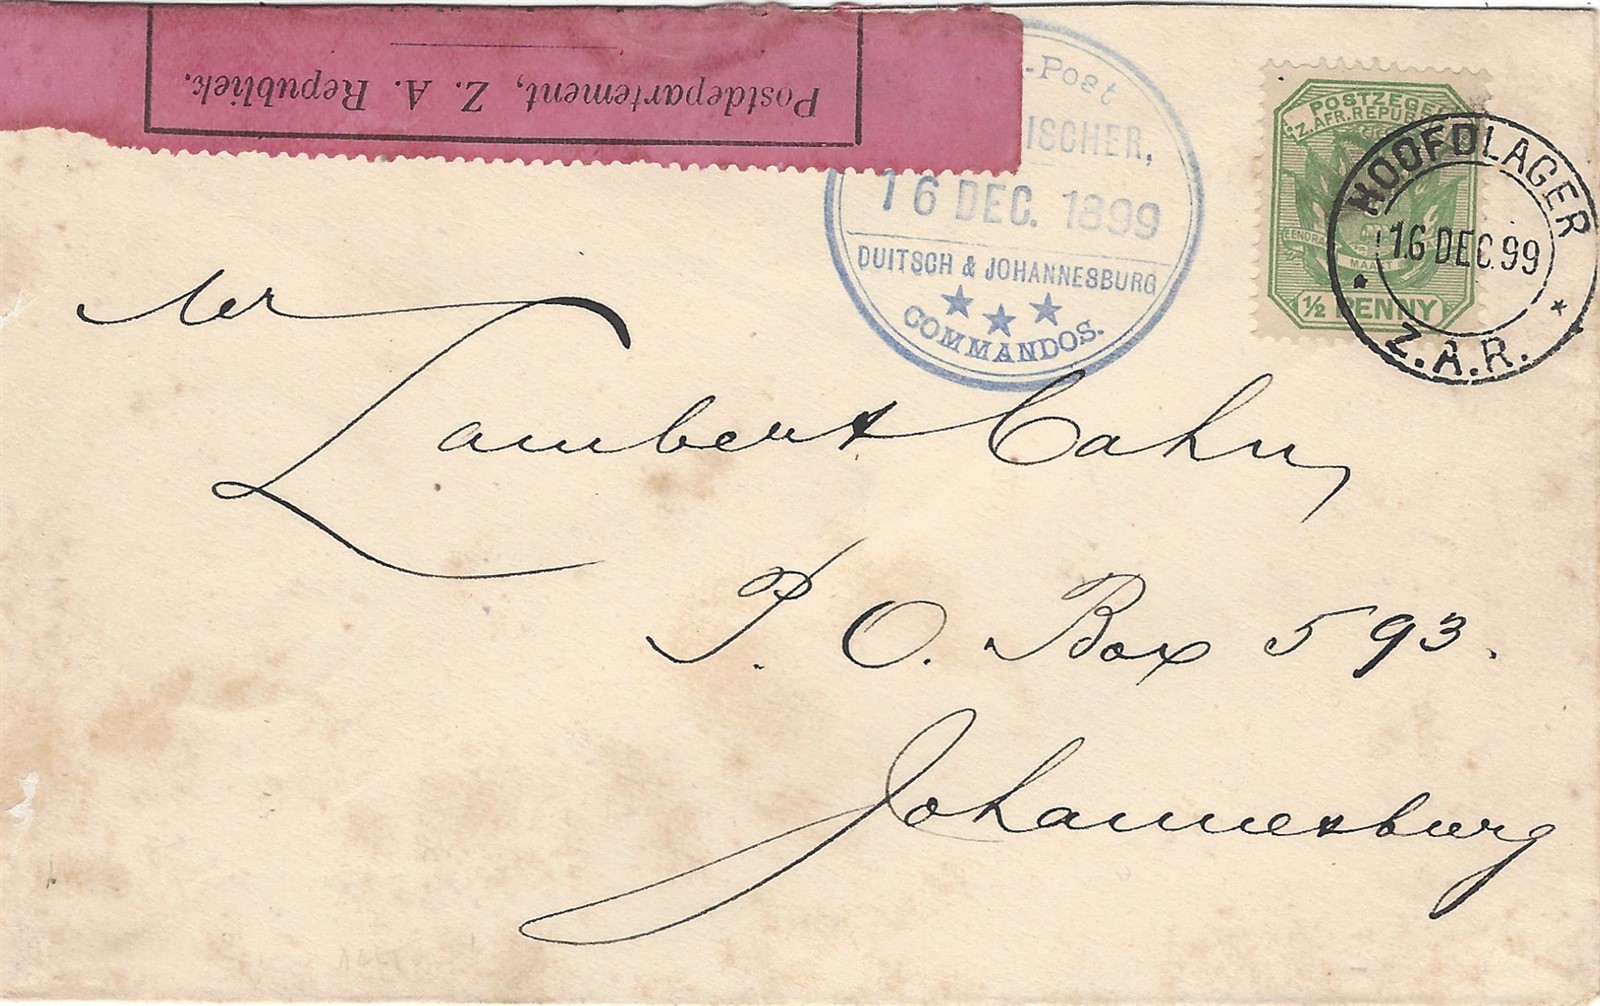 Postdepartement, Z. A. Republiek.
-Post
ISCHER,
16 DEC. 1899
DUITSCH & JOHANNESBURG
COMMANDOS.
POSTZEGEL
Z.AFR.REPUB
EENDRA
MAAKT
½ PENNY
HOOFDLAGER
16 DEC.99
Z.A.R.
Mr
Lambert Cahn,
P. O. Box 593.
Johannesburg